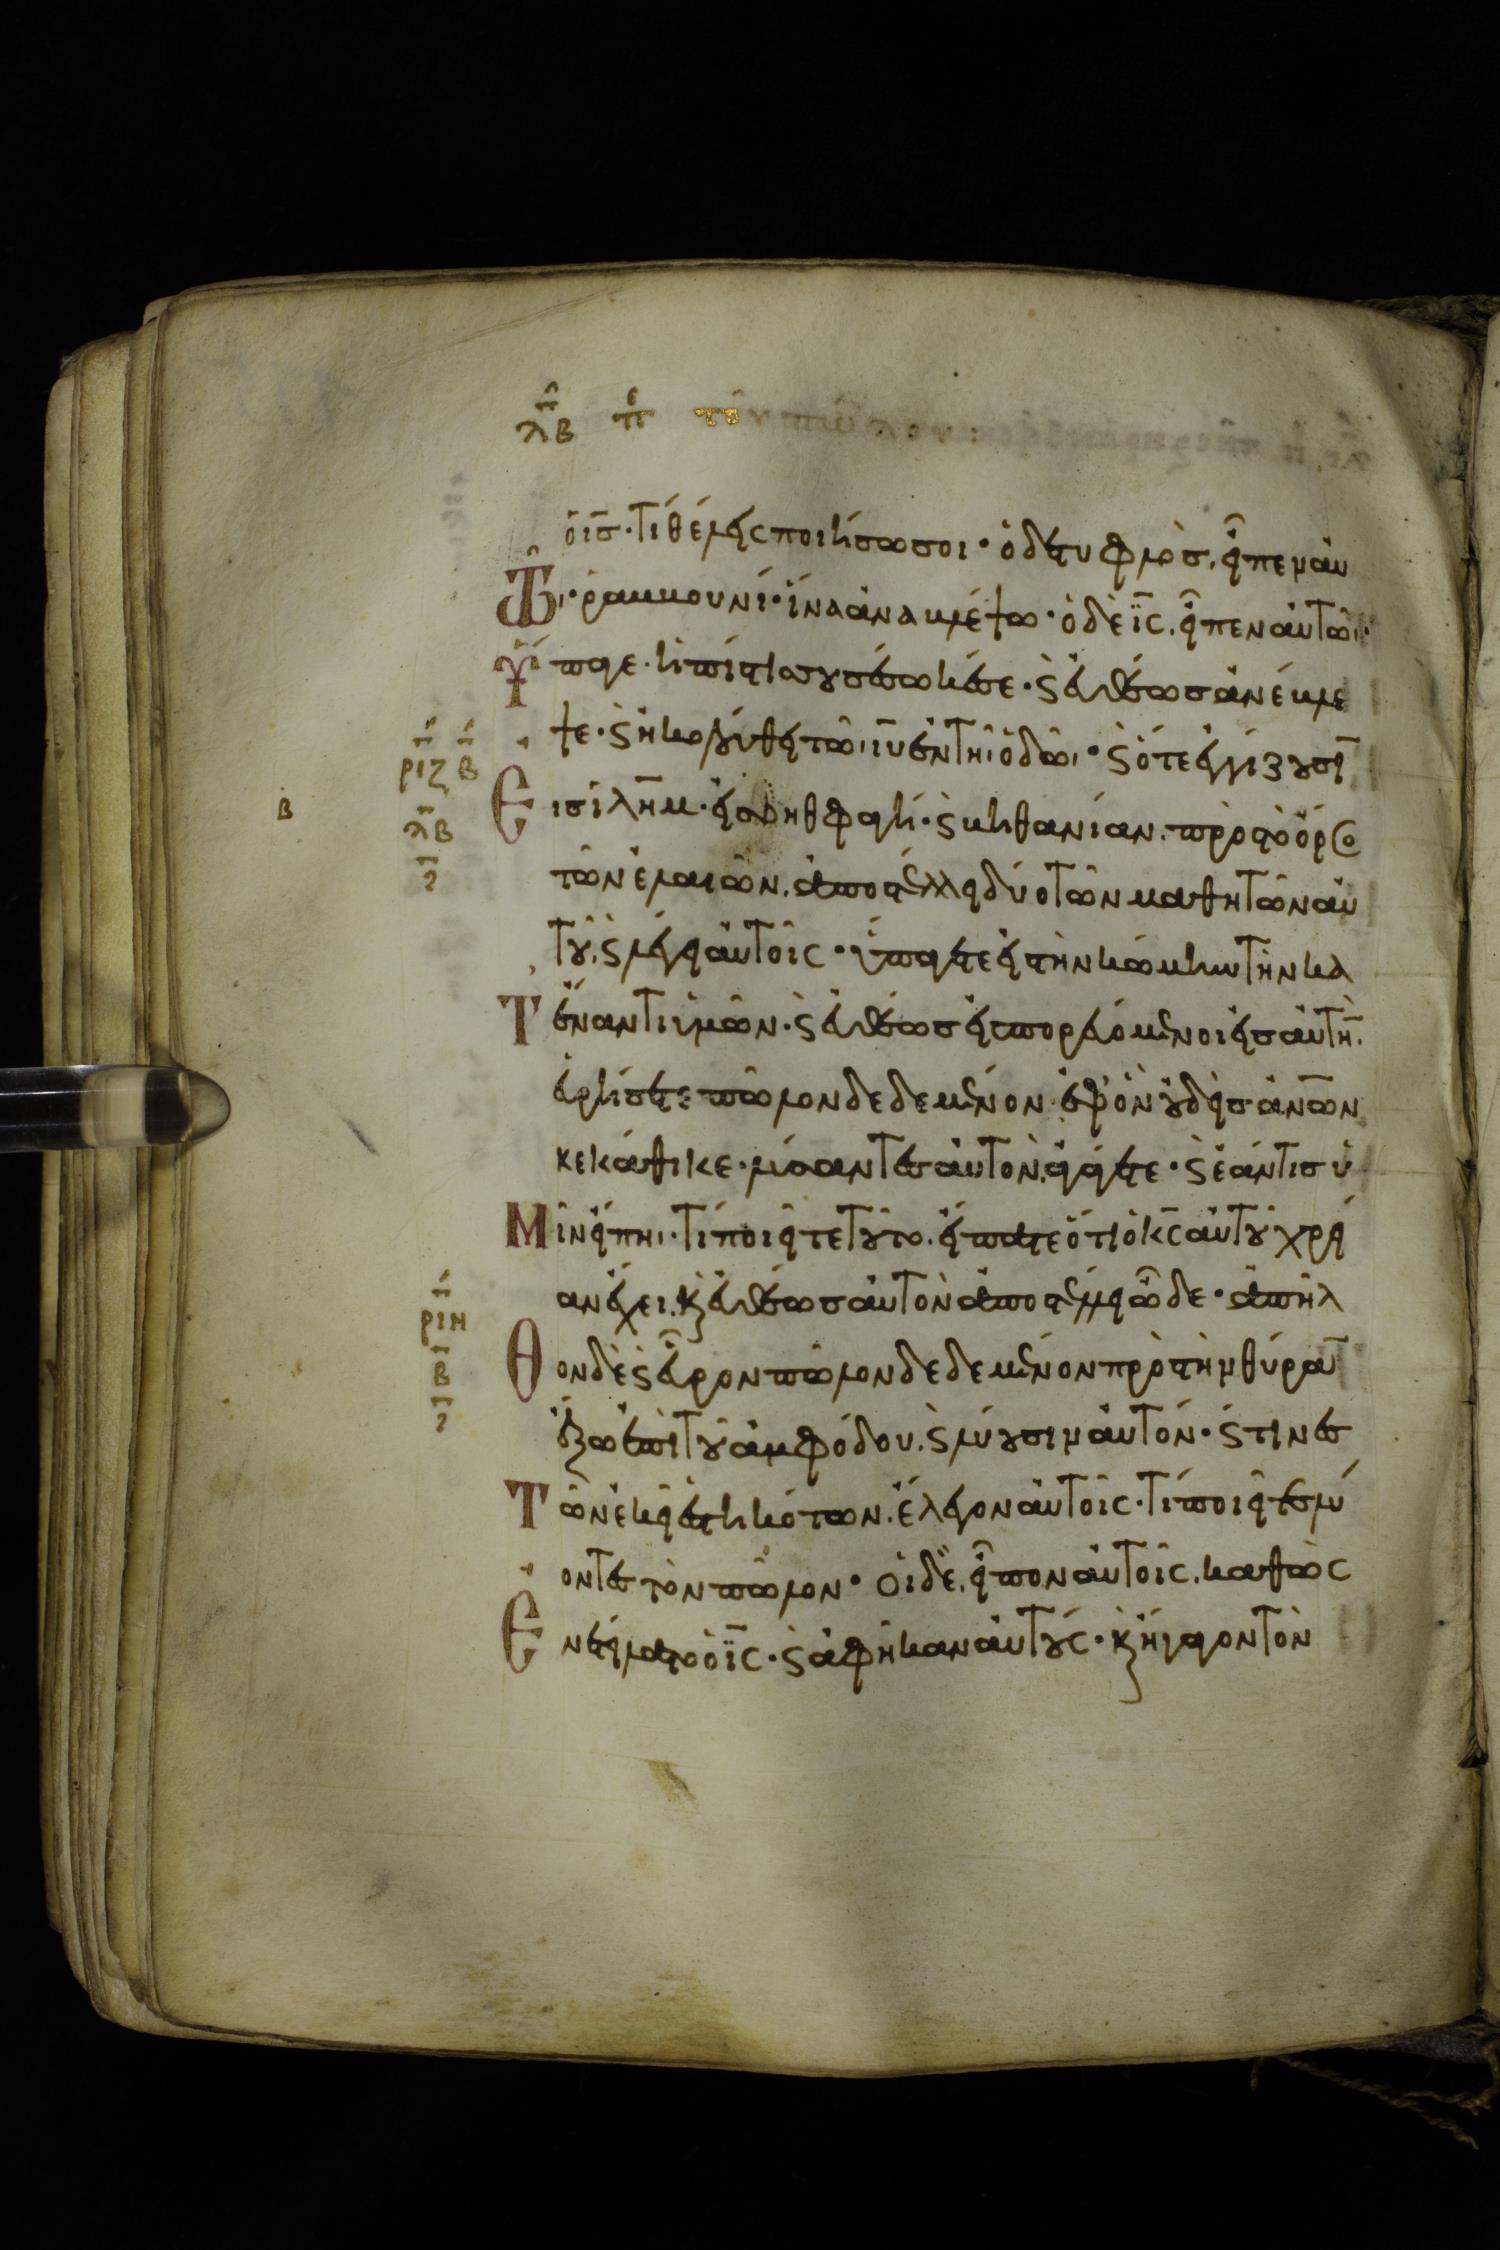 λβ π περὶ τοῦ πώλου
ὁ ις̅· τί θέλεις ποιήσω σοι· ὁ δὲ τυφλὸς, εἶπεν αὐ
τῶι· ῥαββουνί· ἵνα ἀναβλέψω· ὁ δὲ ις̅, εἶπεν αὐτῶι·
ὕπαγε· ἡ πίστις σου σέσωκέ σε· ϗ εὐθέως ἀνέβλε
ψε· ϗ ἠκολούθει τῶι ιυ̅ ἐν τῆι ὁδῶι· ϗ ὅτε ἐγγίζουσιν
εἰς ιλη̅μ· εἰς βηθφαγὴ· ϗ βηθανίαν, πρὸς τὸ ὄρος
τῶν ἐλαιῶν, ἀποστέλλει δύο τῶν μαθητῶν αὐ
τοῦ, ϗ λέγει αὐτοῖς· ὑπάγετε εἰς τὴν κώμην τὴν κα
τέναντι ὑμῶν· ϗ εὐθέως εἰσπορευόμενοι εἰς αὐτὴν,
εὑρήσετε πῶλον δεδεμένον ἐφ' ὃν οὐδεὶς ανω̅ν
κεκάθικε· λύσαντες αὐτὸν, ἀγάγετε· ϗ ἐάν τις ὑ
μῖν εἴπηι· τί ποιεῖτε τοῦτο, εἴπατε ὅτι ὁ κς̅ αὐτοῦ χρεί
αν ἔχει, ϗ εὐθέως αὐτὸν ἀποστέλλει ὧδε· ἀπῆλ
θον δὲ ϗ εὗρον πῶλον δεδεμένον πρὸς τὴν θύραν
ἔξω ἐπὶ τοῦ ἀμφόδου, ϗ λύουσιν αὐτόν· ϗ τινες
τῶν ἐκεῖ ἑστηκότων, ἔλεγον αὐτοῖς· τί ποιεῖτε λύ
οντες τὸν πῶλον· οἱ δὲ, εἶπον αὐτοῖς, καθὼς
ἐνετείλατο ὁ ις̅· ϗ ἀφῆκαν αὐτούς· ϗ ἤγαγον τὸν
ριζ β
λβ
β
ριη
β